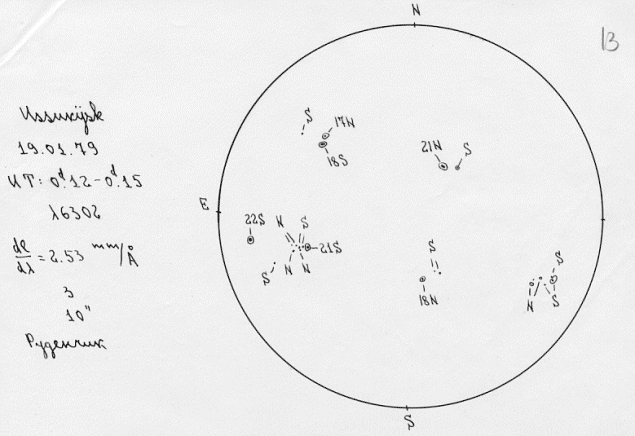 N
13
Ussurijsk
19.01.79
UT: 0ᵈ.12-0ᵈ.15
λ6302
dl/dλ = 2.53 mm/Å
3
10"
Руденчик
S
17N
18S
21N
S
E
22S
N
S
21S
S
N
N
S
18N
S
N
S
S